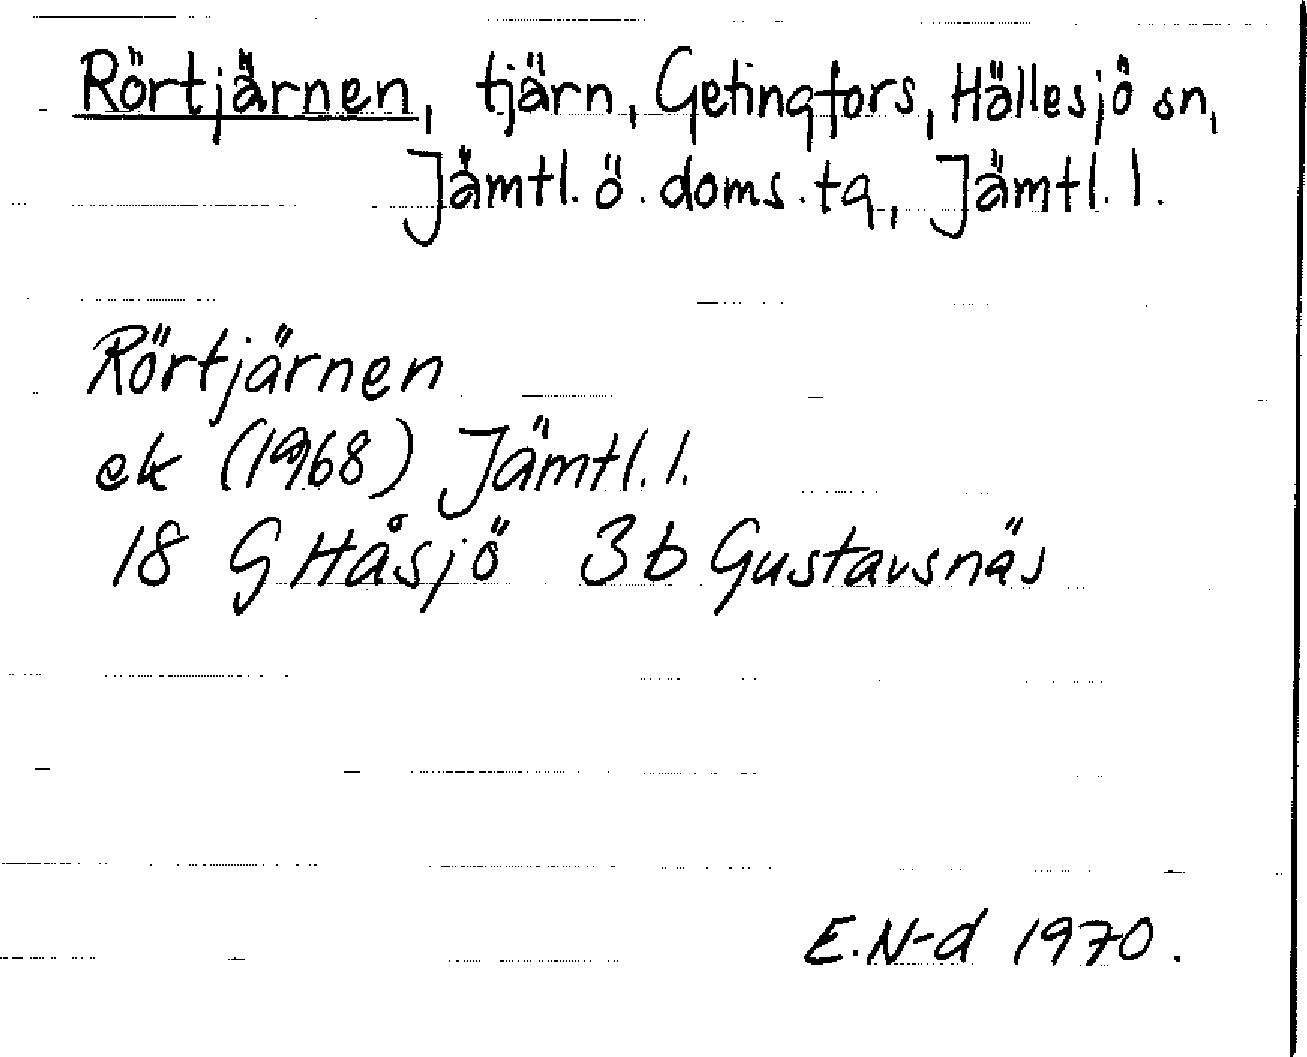 Rörtjärnen, tjärn, Getingfors, Hällesjö sn,
Jämtl. ö. doms. tg, Jämtl. l.
Rörtjärnen
ek (1968) Jämtl. l.
18 G Håsjö 3b Gustavsnäs
E. N-d 1970.